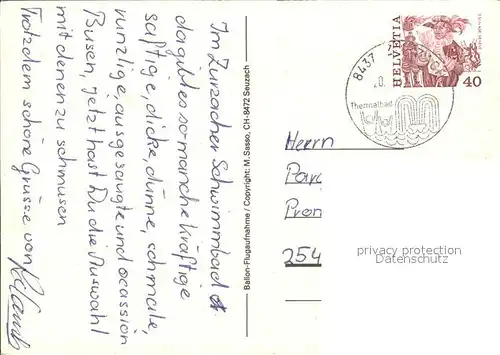 Im Zurzacher Schwimmbad
da gibt es so manche kräftige
saftige, dicke, dünne, schmale,
runzlige, ausgesaugte und ocassion
Busen, jetzt hast Du die Auswahl
mit denen zu schmusen
Trotzdem schöne Grüsse von
Ballon-Flugaufnahme / Copyright: M. Sasso, CH-8472 Seuzach
8437
Thermalbad
HELVETIA
40
Herrn
Par
Pron
254
privacy protection
Datenschutz